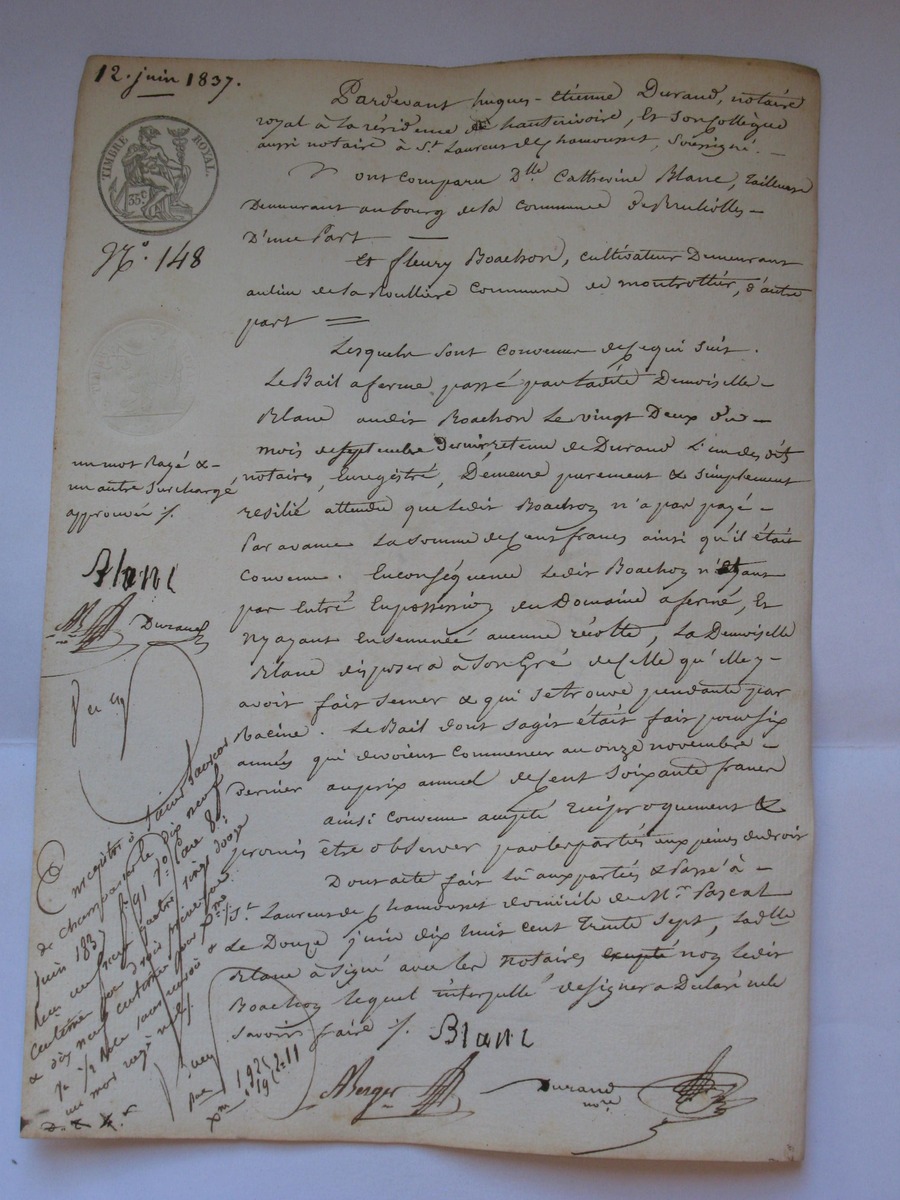 12. juin 1837.
Pardevant hugues-étienne Durand, notaire
royal à la résidence de hauterivoire, et son collègue
aussi notaire à St. Laurent de Chamousset, soussigné. —
TIMBRE ROYAL.
35c
ont comparu Dlle Catherine Blanc, tailleuse
Demeurant au bourg de la commune de Brullolles —
D'une Part —
N.° 148
Et fleury Boachon, cultivateur Demeurant
au lieu de la Roullière commune de montrottier, d'autre
part =
Lesquels sont convenus de ce qui suit.
Le Bail a ferme passé par ladite Demoiselle —
Blanc audit Boachon le vingt Deux du —
mois de septembre dernier, retenu de Durand l'un des dits
notaires, Enregistré, Demeure purement & simplement
résilié attendu que ledit Boachon n'a pas payé —
Par avance La somme de Cent francs ainsi qu'il était
convenu. En conséquence Ledit Boachon n'étant
pas Entré En possession du Domaine afermé, Et
n'y ayant ensemencé aucune récolte, La Demoiselle
Blanc disposera à son Gré de Celle qu'elle y —
avoit fait semer & qui se trouve pendante par
Racine. Le Bail dont s'agit était fait pour six
années qui devoient commencer au onze novembre —
Dernier au prix annuel de Cent soixante francs
ainsi convenu accepté réciproquement &
promis être observer par les parties aux peines du droit
Dont acte fait lu aux parties & Passé à —
St. Laurent de Chamousset domicile de Mr. Pascal
Le Douze juin dix huit cent trente sept, ladlle
Blanc à signé avec les notaires excepté non ledit
Boachon lequel interpellé de signer a Déclaré ne le
savoir faire ./.
Blanc
ABerger
Durand
nore
un mot Rayé & —
un autre surchargé
approuvés ./.
Blanc
Durand
Enregistré à Saint Laurent
de Chamousset le dix neuf
juin 1837 fo 91 Vo Case 8.
Reçu un franc quatre vingt douze
centimes pour droit
& dix neuf centimes pour
un mot rayé nul ./.
1,92
19
2-11